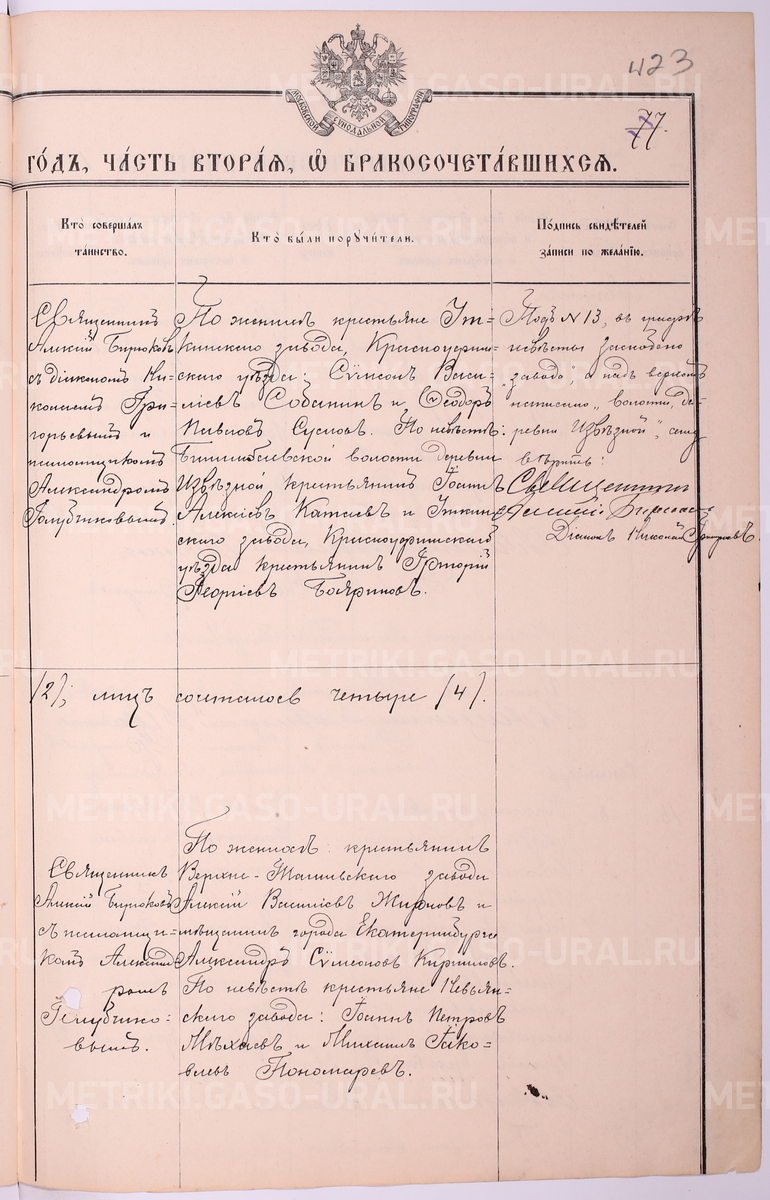 423
77.
МОСКОВСКОЙ СѴНОДАЛЬНОЙ ТИПОГРАФІИ
ГОДЪ, ЧАСТЬ ВТОРАЯ, Ѽ БРАКОСОЧЕТАВШИХСЯ.
Кто совершалъ
таинство.
Кто были поручители.
Подпись свидѣтелей
записи по желанію.
Священникъ
Алексій Бирюковъ
съ діакономъ Ни-
колаемъ Гри-
горьевымъ и
псаломщикомъ
Александромъ
Голубчиковымъ.
По женихѣ крестьяне Ут-
кинскаго завода, Красноуфим-
скаго уѣзда: Сѵмеонъ Васи-
ліевъ Собанинъ и Ѳеодоръ
Павловъ Сусловъ. По невѣстѣ:
Билимбаевской волости деревни
Извѣздной крестьянинъ Іоаннъ
Алексіевъ Катаевъ и Уткин-
скаго завода, Красноуфимскаго
уѣзда крестьянинъ Григорій
Георгіевъ Бояриновъ.
Подъ №13, въ графѣ
невѣсты заскоблено
„завода", а надъ верхомъ
написано „волости, де-
ревни Извѣздной",
вѣрить:
Священникъ
Алексій Бирюковъ
Діаконъ Николай Григорьевъ.
/2/; лицъ сочеталось четыре /4/.
Священникъ
Алексій Бирюковъ
съ псаломщи-
комъ Александ-
ромъ
Голубчико-
вымъ.
По женихѣ: крестьянинъ
Верхне-Тагильскаго завода
Алексій Василіевъ и
мѣщанинъ города Екатеринбурга
Александръ Сѵмеоновъ Кирилловъ.
По невѣстѣ крестьяне Невьян-
скаго завода: Іоаннъ Петровъ
и Михаилъ Іако-
влевъ Пономаревъ.
METRIKI.GASO-URAL.RU